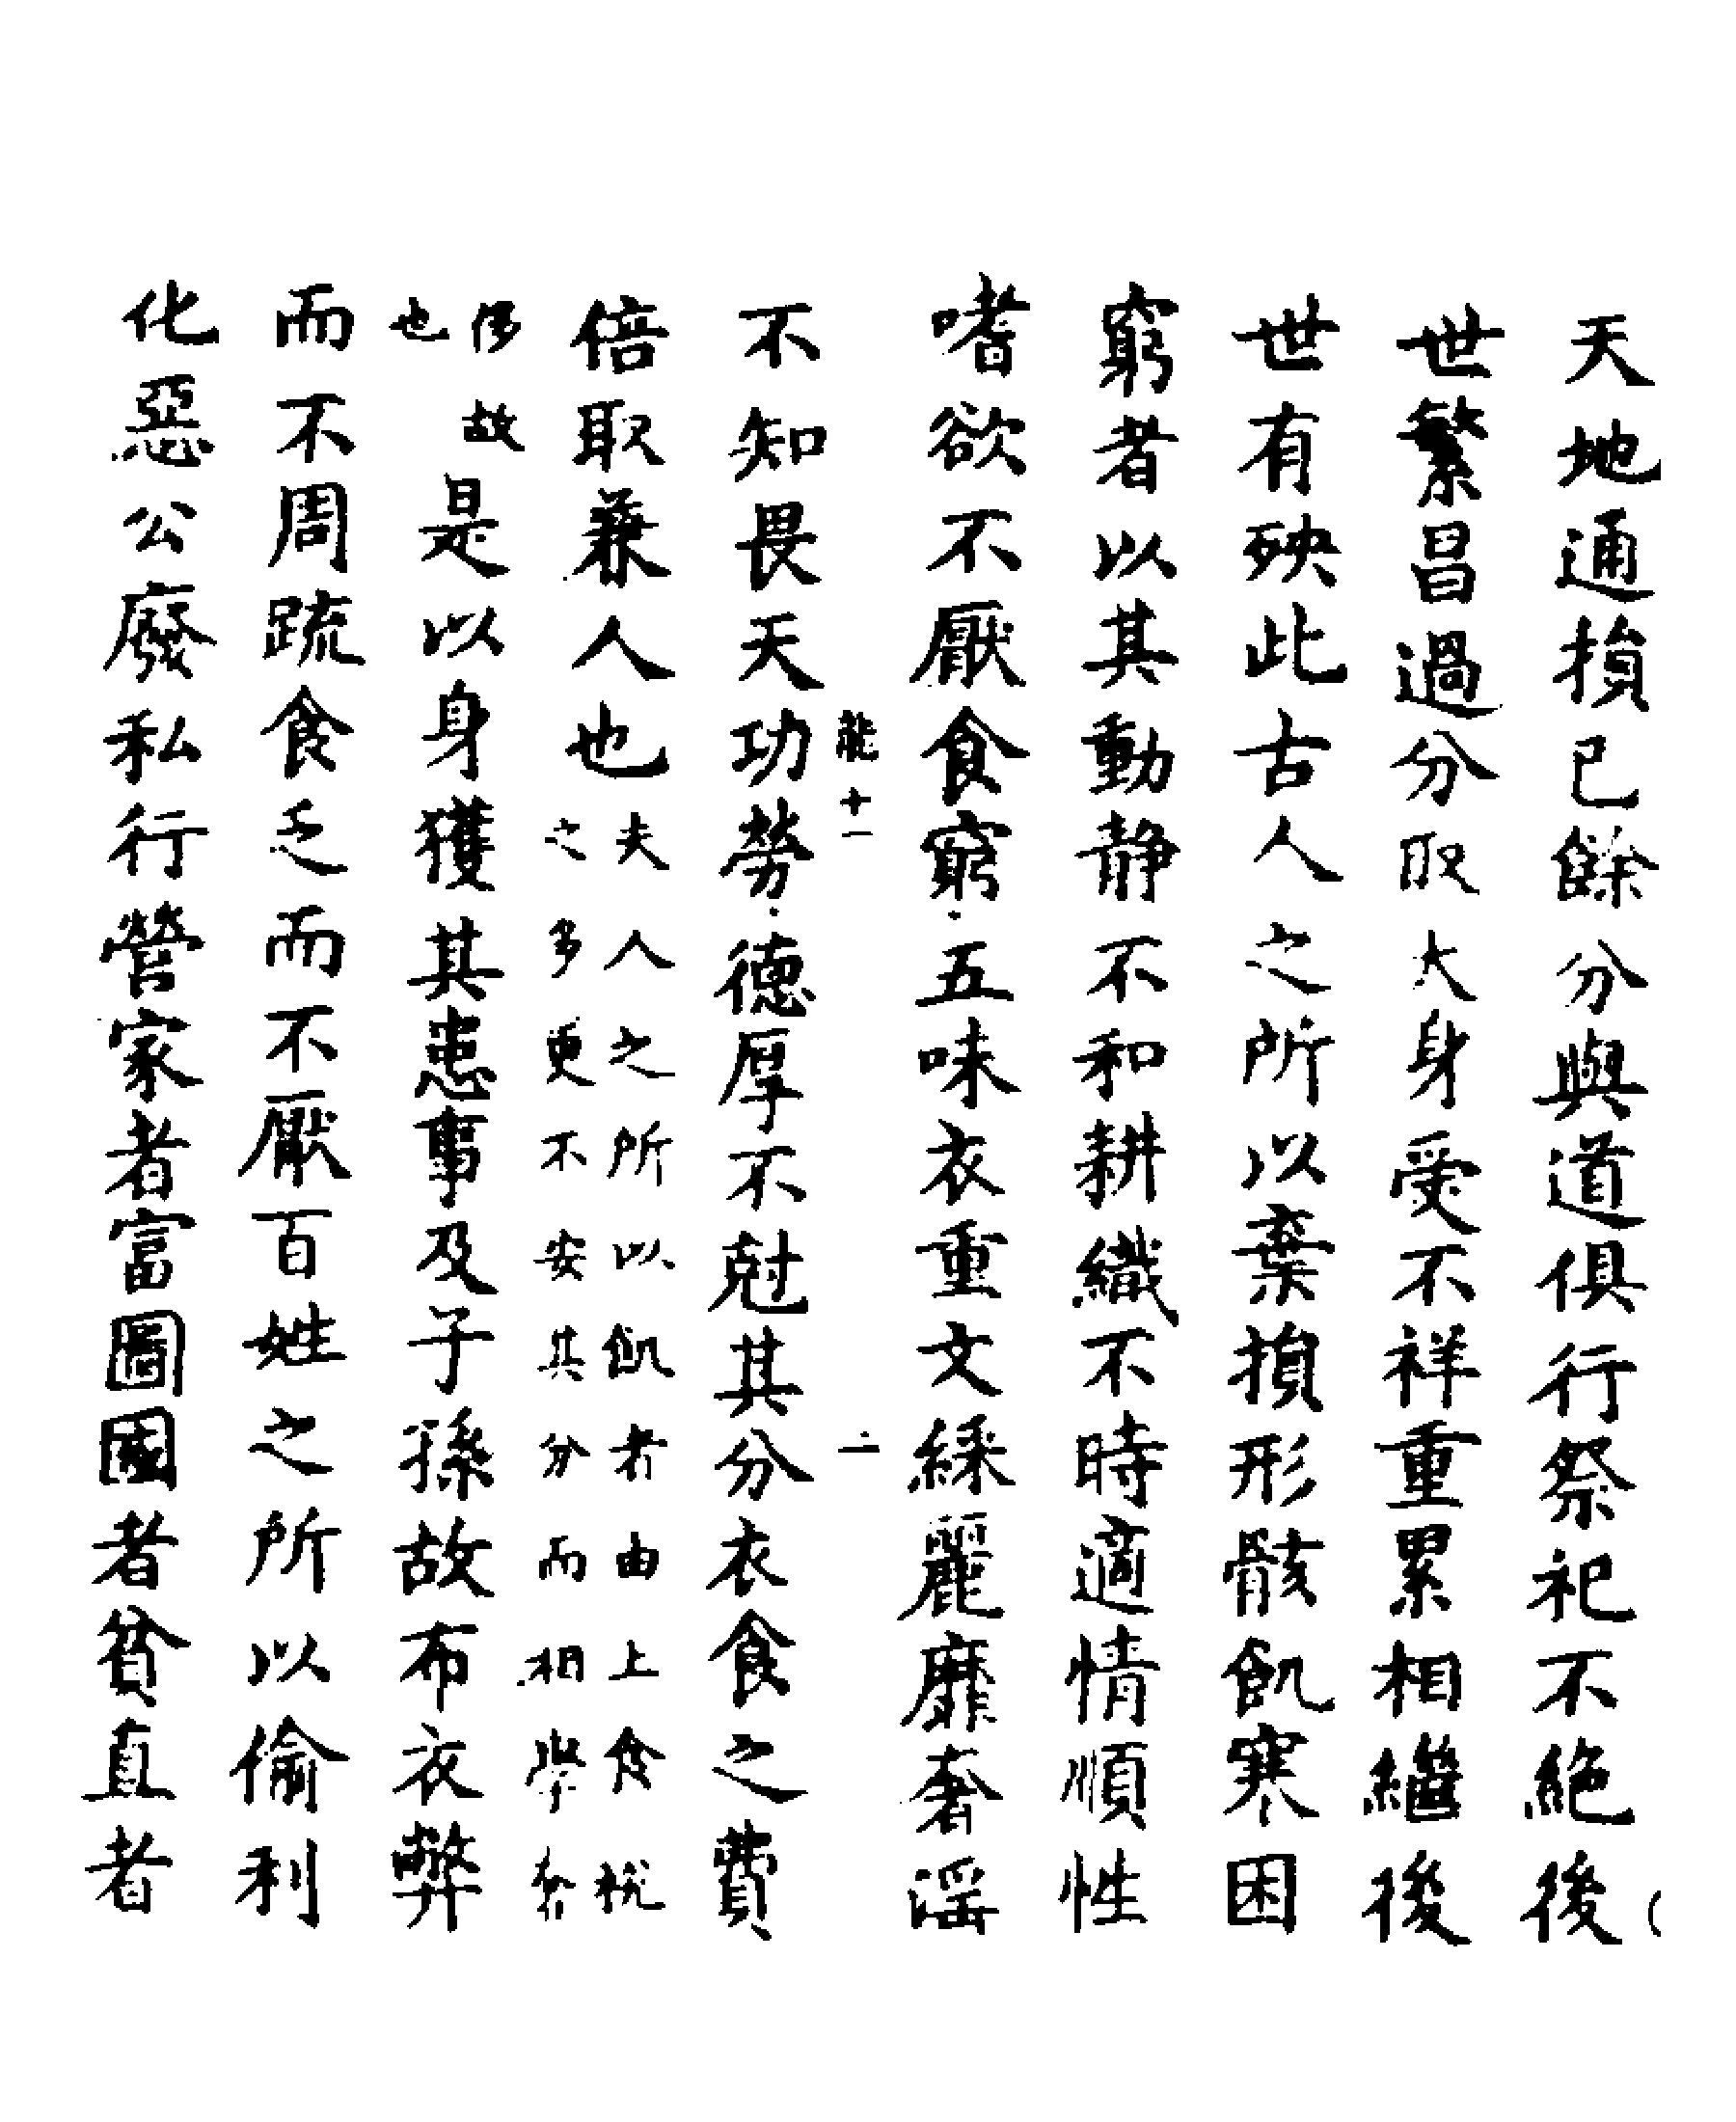 天地通損已餘分與道俱行祭祀不絕後
世繁昌過分取大身受不祥重累相繼後
世有殃此古人之所以棄損形骸飢寒困
窮者以其動静不和耕織不時適情順性
嗜欲不厭食窮五味衣重文綵麗靡奢淫
能十一
二
不知畏天功勞德厚不尅其分衣食之費
倍取兼人也夫人之所以飢者由上食稅
之多更不安其分而相學奢
侈故
也
是以身獲其患事及子孫故布衣弊
而不周䟽食乏而不厭百姓之所以偷利
化惡公廢私行營家者富圖國者貧直者